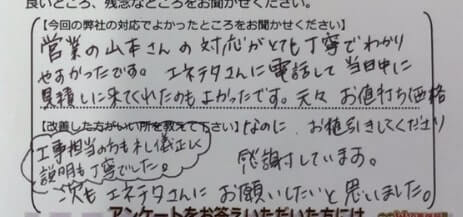 良いところ、残念なところをお聞かせください。
【今回の弊社の対応でよかったところをお聞かせください】
営業の山本さんの対応がとても丁寧でわかり
やすかったです。エネテクさんに電話して当日中に
見積しに来てくれたのもよかったです。元々お値打ち価格
【改善した方がいい所を教えて下さい】なのに、お値引きしてくださり
感謝しています。
工事担当のかたも礼儀正しく
説明も丁寧でした。
次もエネテクさんにお願いしたいと思いました。
アンケートをお答えいただいた方には